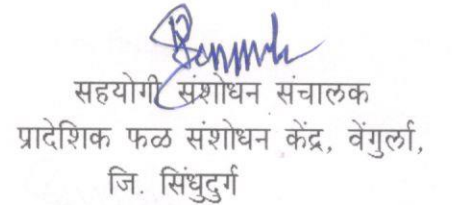 सहयोगी संशोधन संचालक
प्रादेशिक फळ संशोधन केंद्र, वेंगुर्ला,
जि. सिंधुदुर्ग